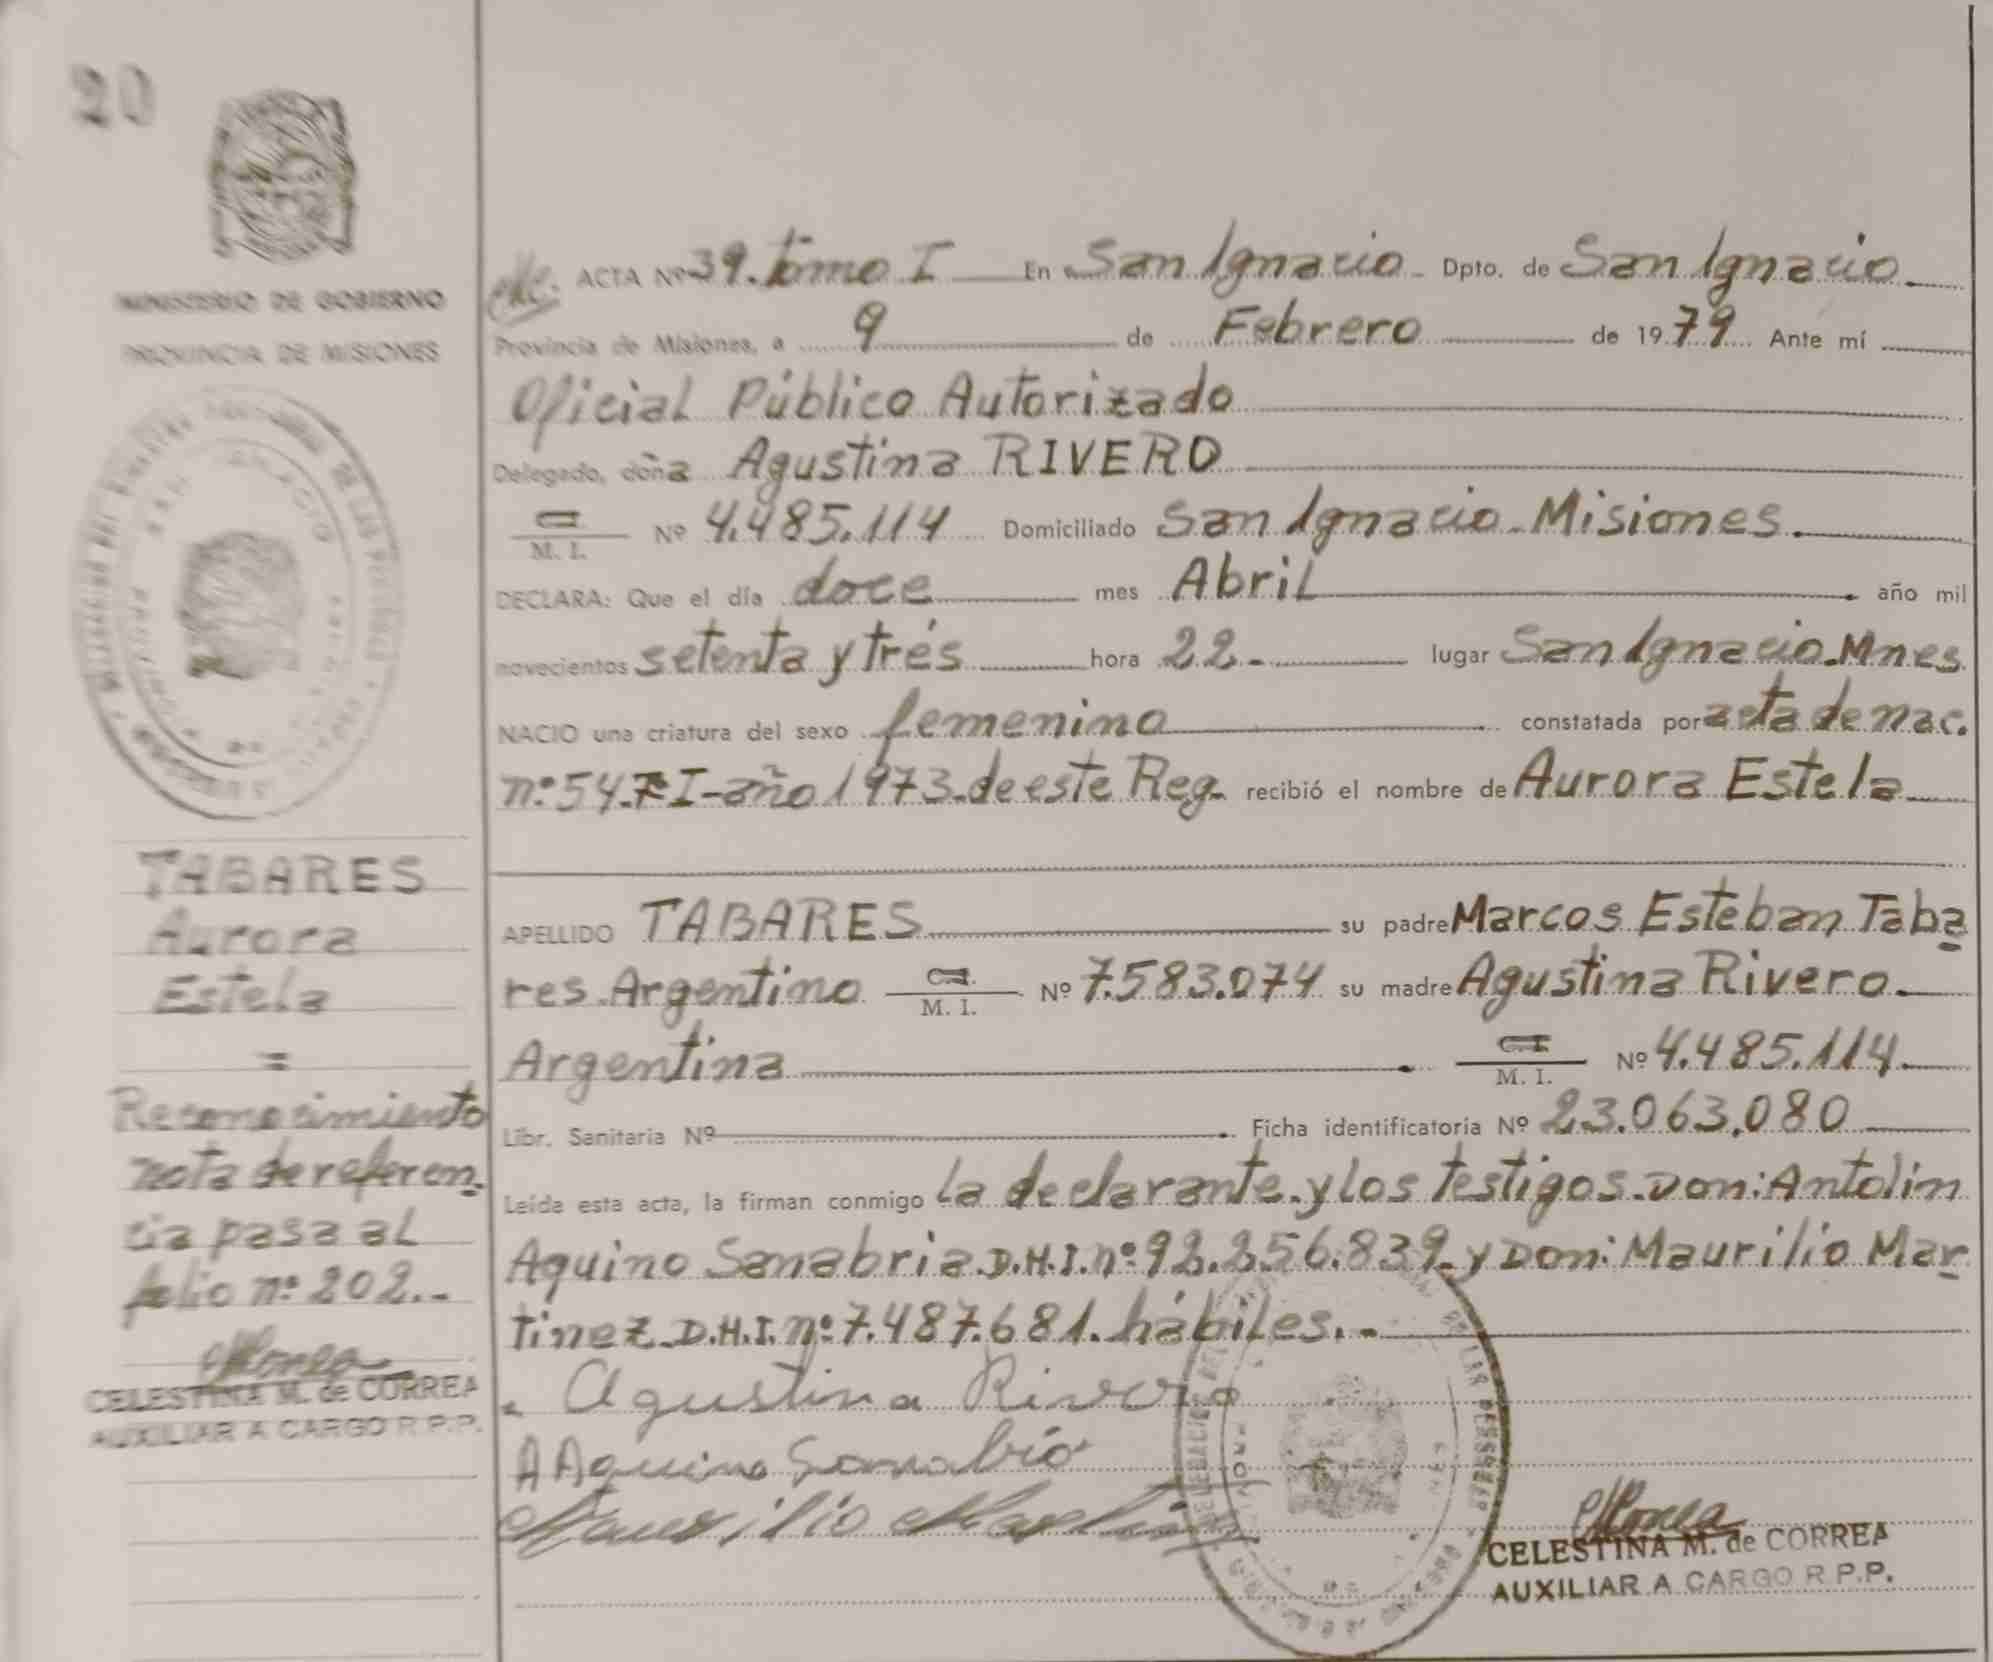 20
MINISTERIO DE GOBIERNO
PROVINCIA DE MISIONES
TABARES
Aurora
Estela
=
Reconocimiento
nota de referen-
cia pasa al
folio nº 202.-
CELESTINA M. de CORREA
AUXILIAR A CARGO R.P.P.
ACTA Nº 39. tomo I En San Ignacio Dpto. de San Ignacio
Provincia de Misiones, a 9 de Febrero de 1979 Ante mí
Oficial Público Autorizado
Delegado, doña Agustina RIVERO
C.I.
M. I. Nº 4.485.114 Domiciliado San Ignacio-Misiones.
DECLARA: Que el día doce mes Abril año mil
novecientos setenta y trés hora 22- lugar San Ignacio-Mnes.
NACIO una criatura del sexo femenino constatada por acta de nac.
nº 54-Tº I-año 1973-de este Reg. recibió el nombre de Aurora Estela
APELLIDO TABARES su padre Marcos Esteban Taba
res-Argentino C.I.
M. I. Nº 7.583.074 su madre Agustina Rivero.
Argentina C.I.
M. I. Nº 4.485.114
Libr. Sanitaria Nº Ficha identificatoria Nº 23.063.080
Leída esta acta, la firman conmigo la declarante-y los testigos-Don: Antolin
Aquino Sanabria D.H.I. nº 92.256.839-y Don: Maurilio Mar
tinez-D.H.I. nº 7.487.681. hábiles.-
Agustina Rivero
A Aquino Sanabria
Maurilio Martinez
CELESTINA M. de CORREA
AUXILIAR A CARGO R.P.P.